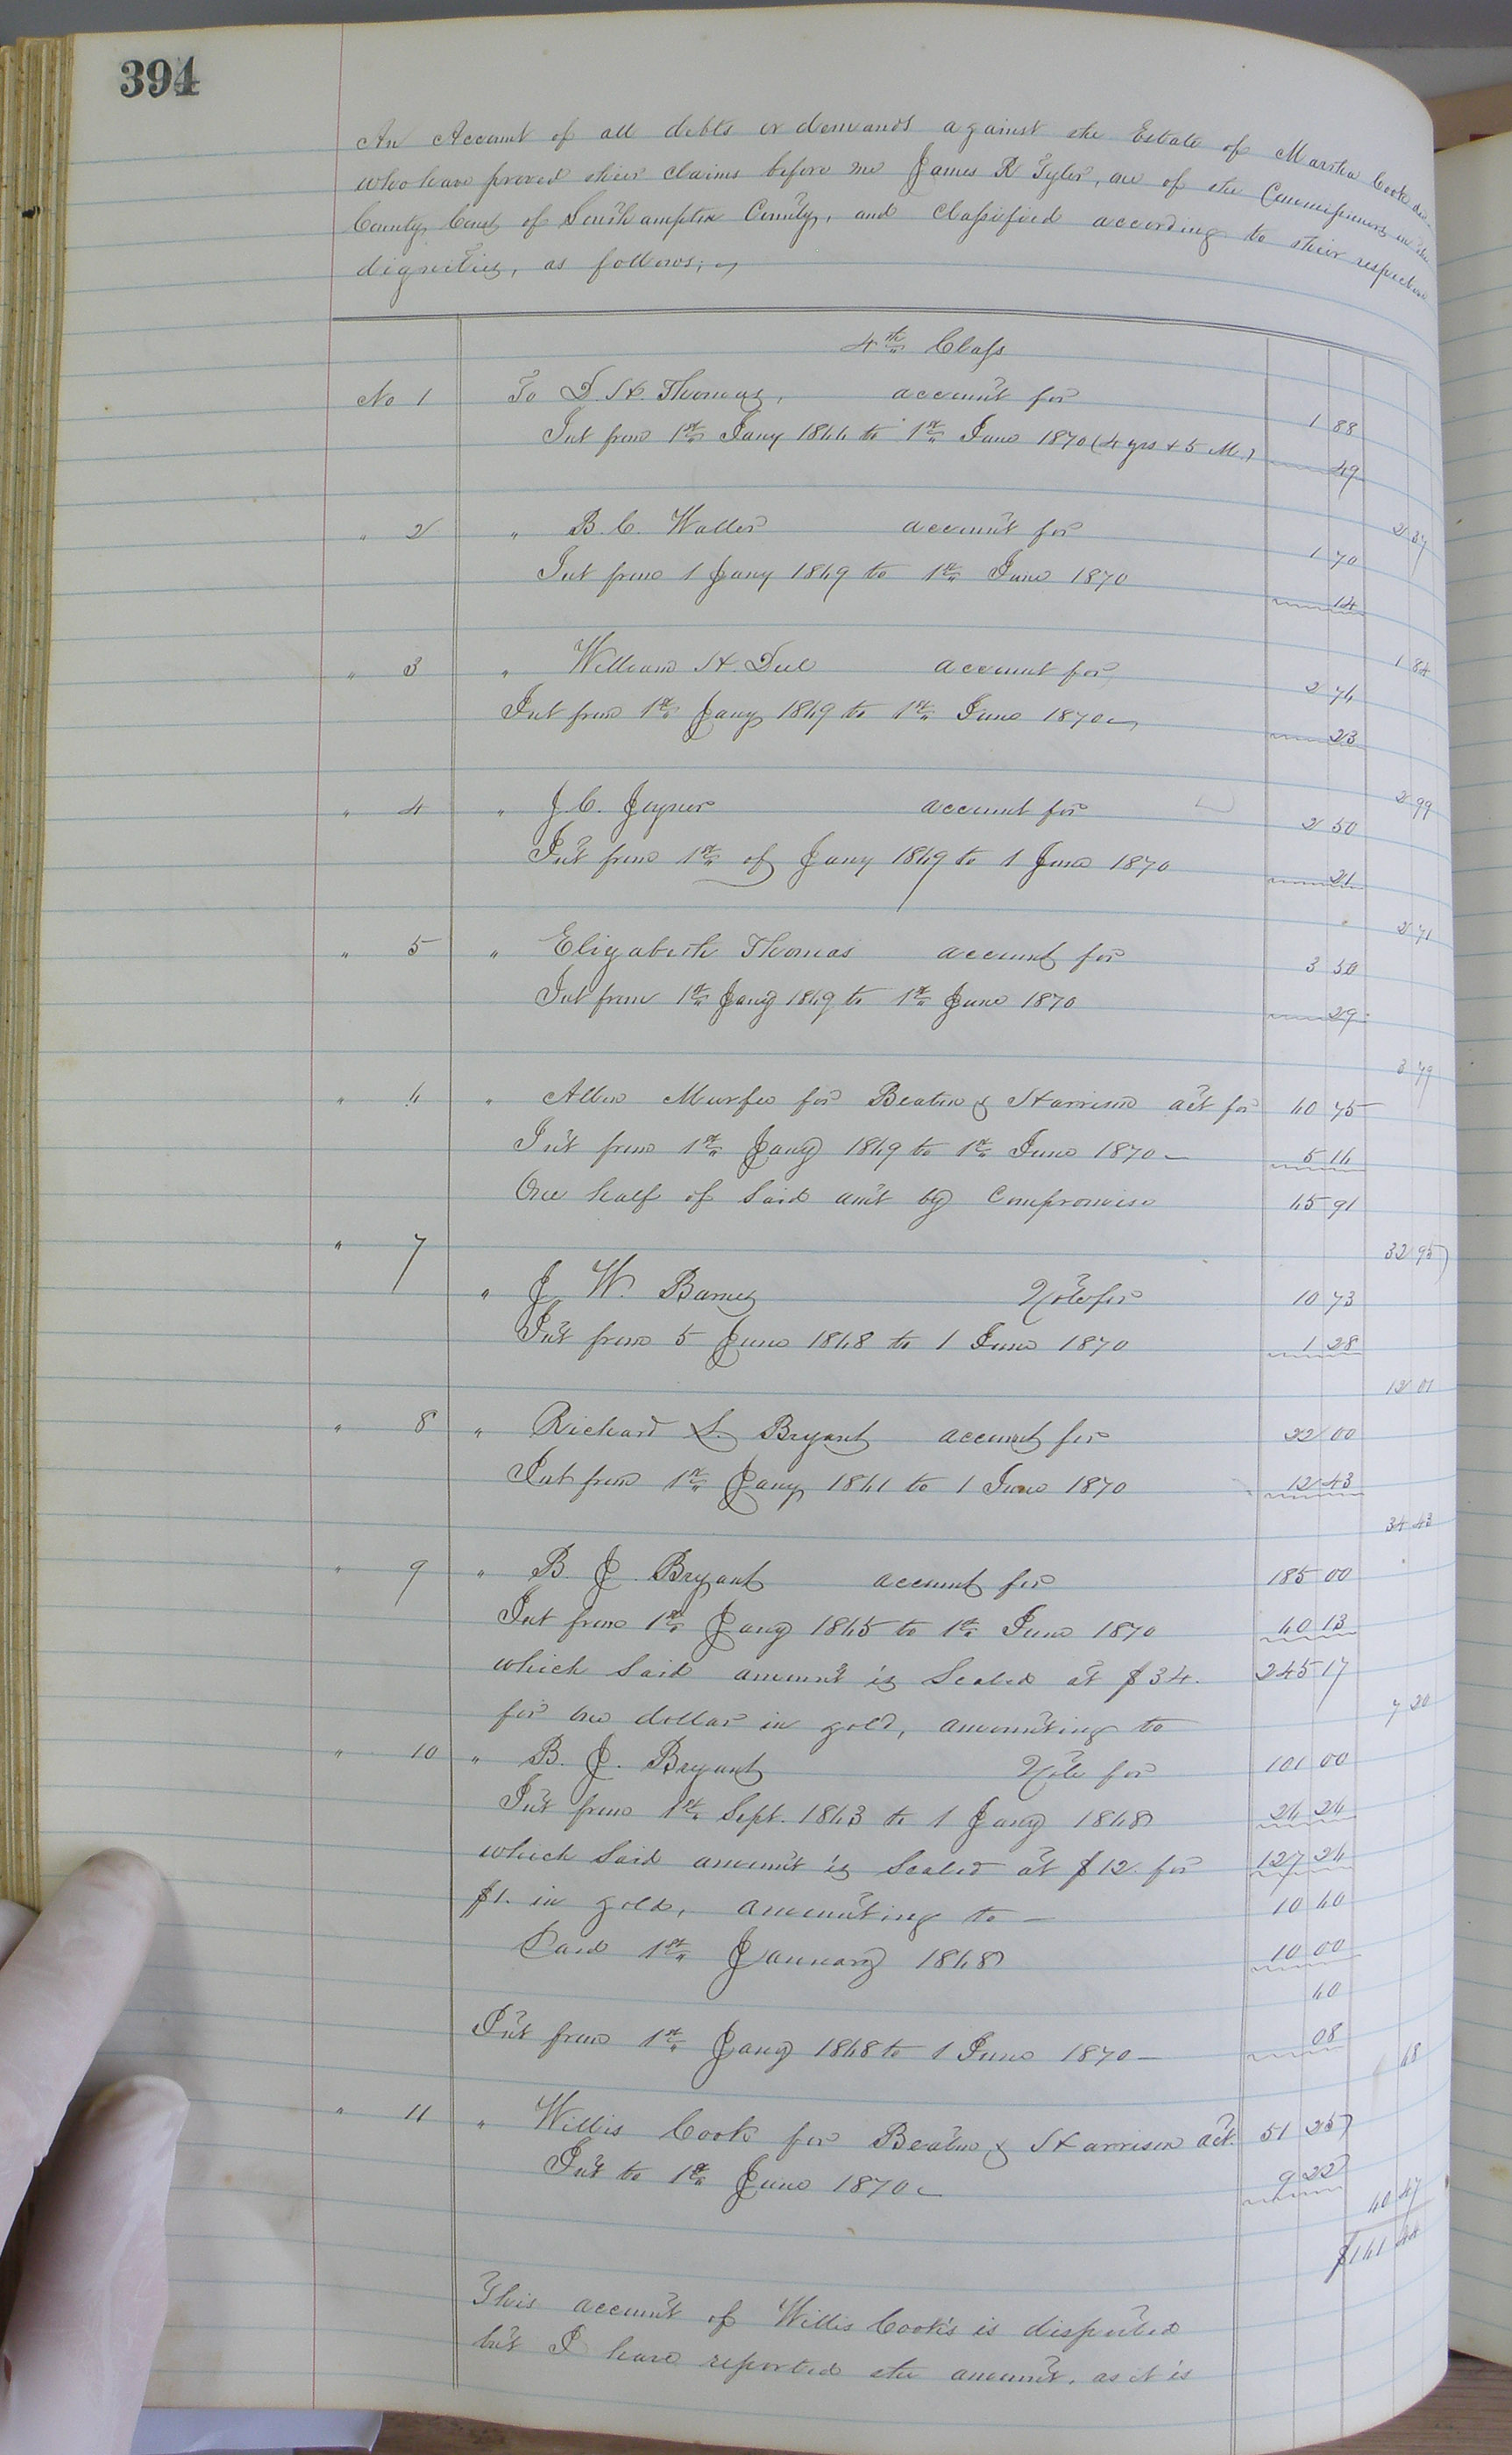 394
An Account of all debts or demands against the Estate of Martha Cook dec.
who have proved their claims before me James R Tyler, one of the Commissioners in the
County Court of Southampton County, and classified according to their respective
dignities, as follows;
4th Class
No 1 To D. H. Thomas, account for 1 88
Int from 1st Jany 1866 to 1st June 1870 (4 yrs & 5 M.) 49
2 37
" 2 " B. C. Waller account for 1 70
Int from 1 Jany 1869 to 1st June 1870 14
1 84
" 3 " William H. Dul account for 2 76
Int from 1st Jany 1869 to 1st June 1870 23
2 99
" 4 " J. C. Joyner account for 2 50
Int from 1st of Jany 1869 to 1 June 1870 21
2 71
" 5 " Elizabeth Thomas account for 3 50
Int from 1st Jany 1869 to 1st June 1870 29
3 79
" 6 " Allen Murfee for Beaton & Harrison act for 60 75
Int from 1st Jany 1869 to 1st June 1870 5 16
One half of said amt by Compromise 65 91
32 95
" 7 " J W. Barnes Note for 10 73
Int from 5 June 1868 to 1 June 1870 1 28
12 01
" 8 " Richard S. Bryant account for 22 00
Int from 1st Jany 1861 to 1 June 1870 12 43
34 43
" 9 " B. J. Bryant account for 185 00
Int from 1st Jany 1865 to 1st June 1870 60 13
which said amount is Scaled at $34. 245 17
for one dollar in gold, amounting to 7 20
" 10 " B. J. Bryant Note for 101 00
Int from 1st Sept. 1863 to 1 Jany 1868 26 26
which said amount is Scaled at $12. for 127 26
$1. in gold, amounting to 10 60
Paid 1st January 1868 10 00
60
Int from 1st Jany 1868 to 1 June 1870 08
68
" 11 " Willis Cook for Beaton & Harrison act. 51 25
Int to 1st June 1870 9 22
60 47
$161 44
This account of Willis Cook's is disputed
but I have reported the amount, as it is